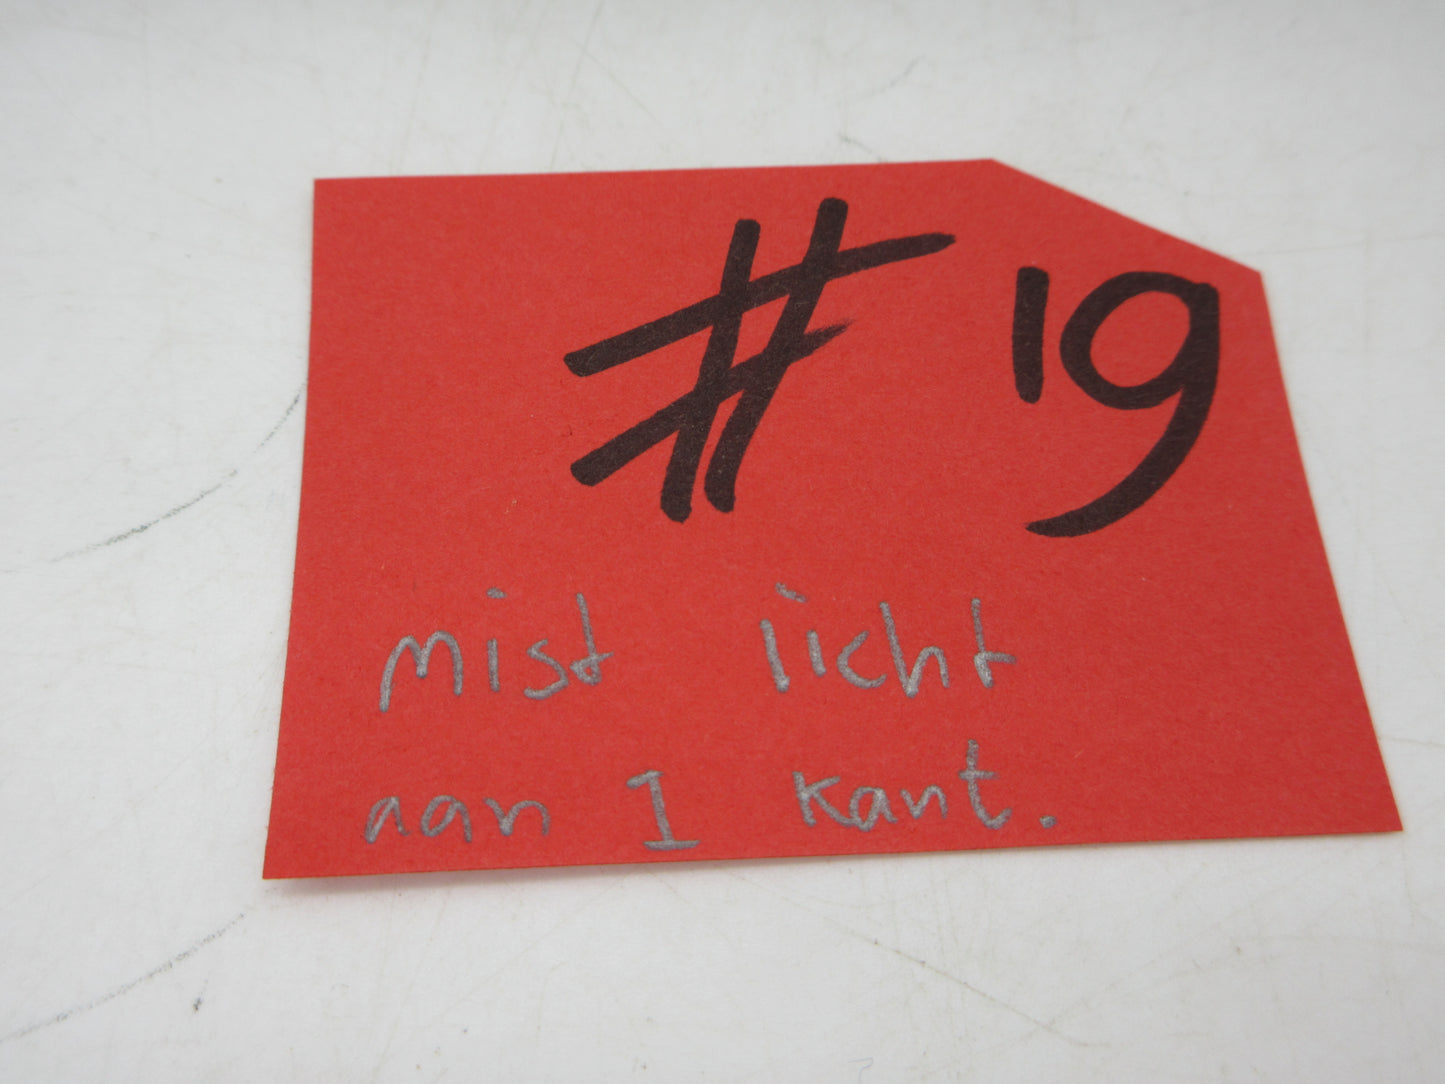 # 19
mist licht
aan 1 kant.